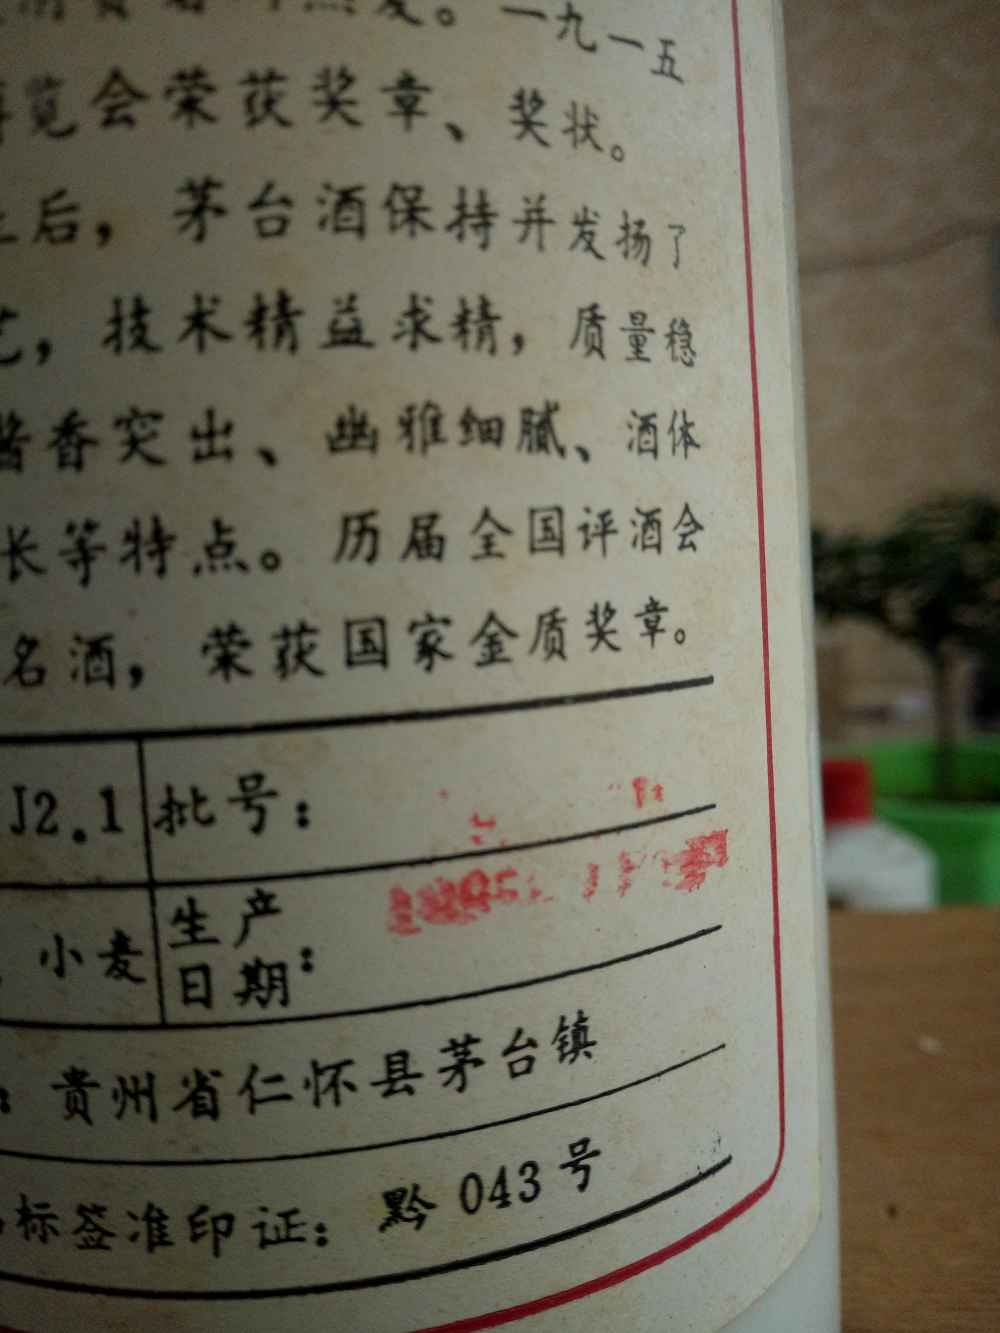 一九一五
览会荣获奖章、奖状。
后，茅台酒保持并发扬了
艺，技术精益求精，质量稳
酱香突出、幽雅细腻、酒体
长等特点。历届全国评酒会
名酒，荣获国家金质奖章。
J2.1 批号：
小麦 生产日期：
：贵州省仁怀县茅台镇
标签准印证：黔 043 号